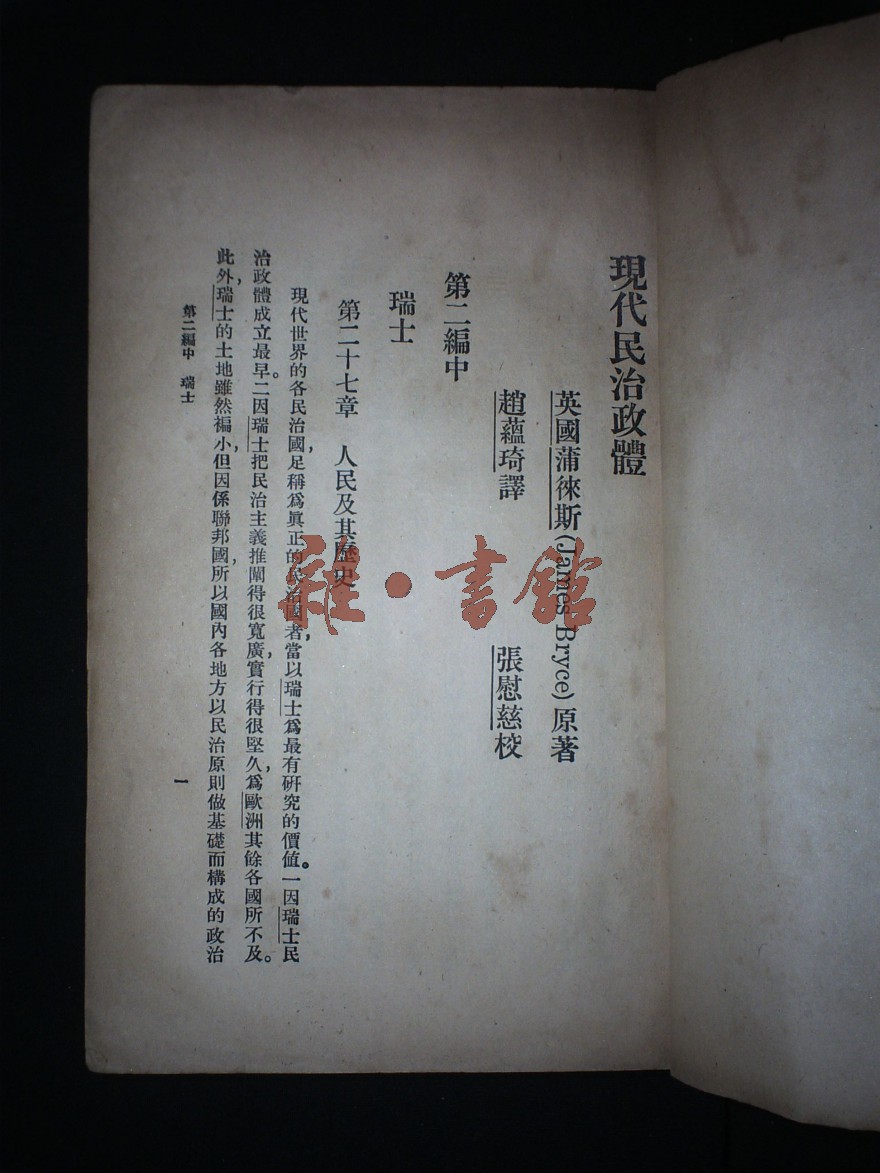 現代民治政體
英國蒲徠斯(James Bryce)原著
趙蘊琦譯 張慰慈校
第二編中
瑞士
第二十七章 人民及其歷史
現代世界的各民治國,足稱爲眞正的民治國者,當以瑞士爲最有硏究的價值。一因瑞士民
治政體成立最早。二因瑞士把民治主義推闡得很寬廣,實行得很堅久,爲歐洲其餘各國所不及。
此外,瑞士的土地雖然褊小,但因係聯邦國,所以國內各地方以民治原則做基礎而構成的政治
第二編中 瑞士
一
雜·書館